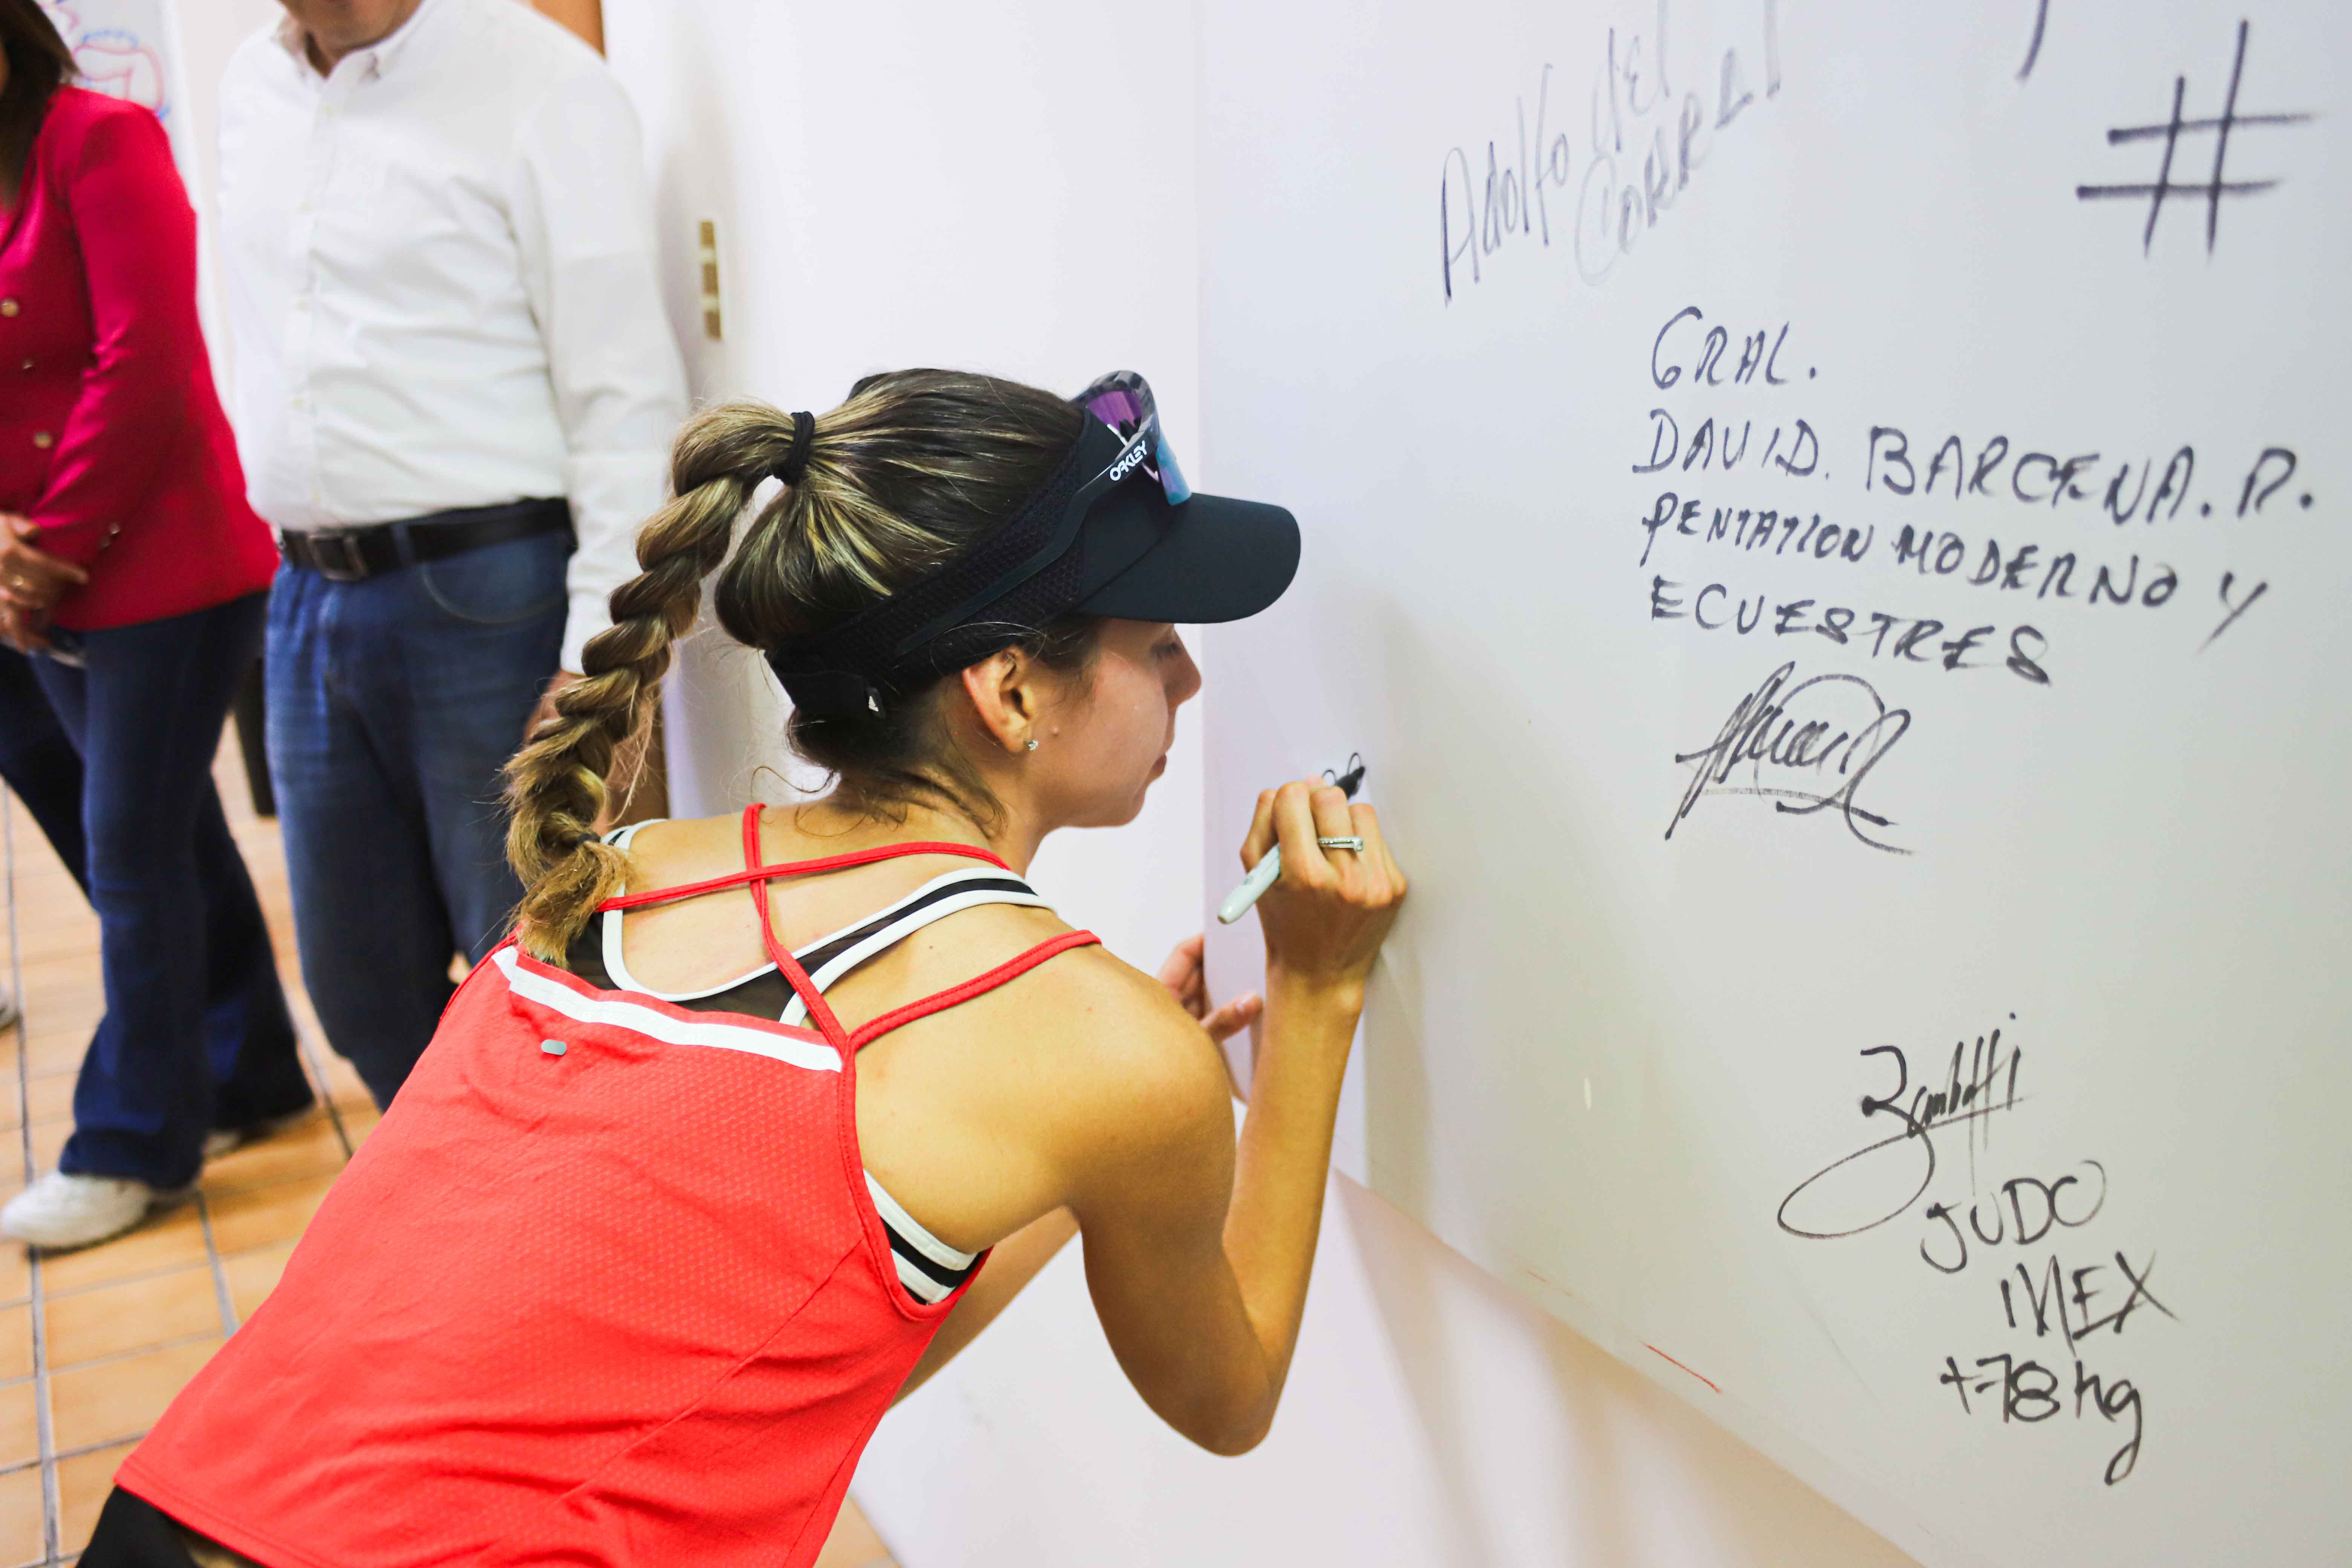 Adolfo del
CORRAL
#
GRAL.
DAVID. BARCENA. R.
PENTATLON MODERNO Y
ECUESTRES
Zambotti
JUDO
MEX
+78 kg
OAKLEY